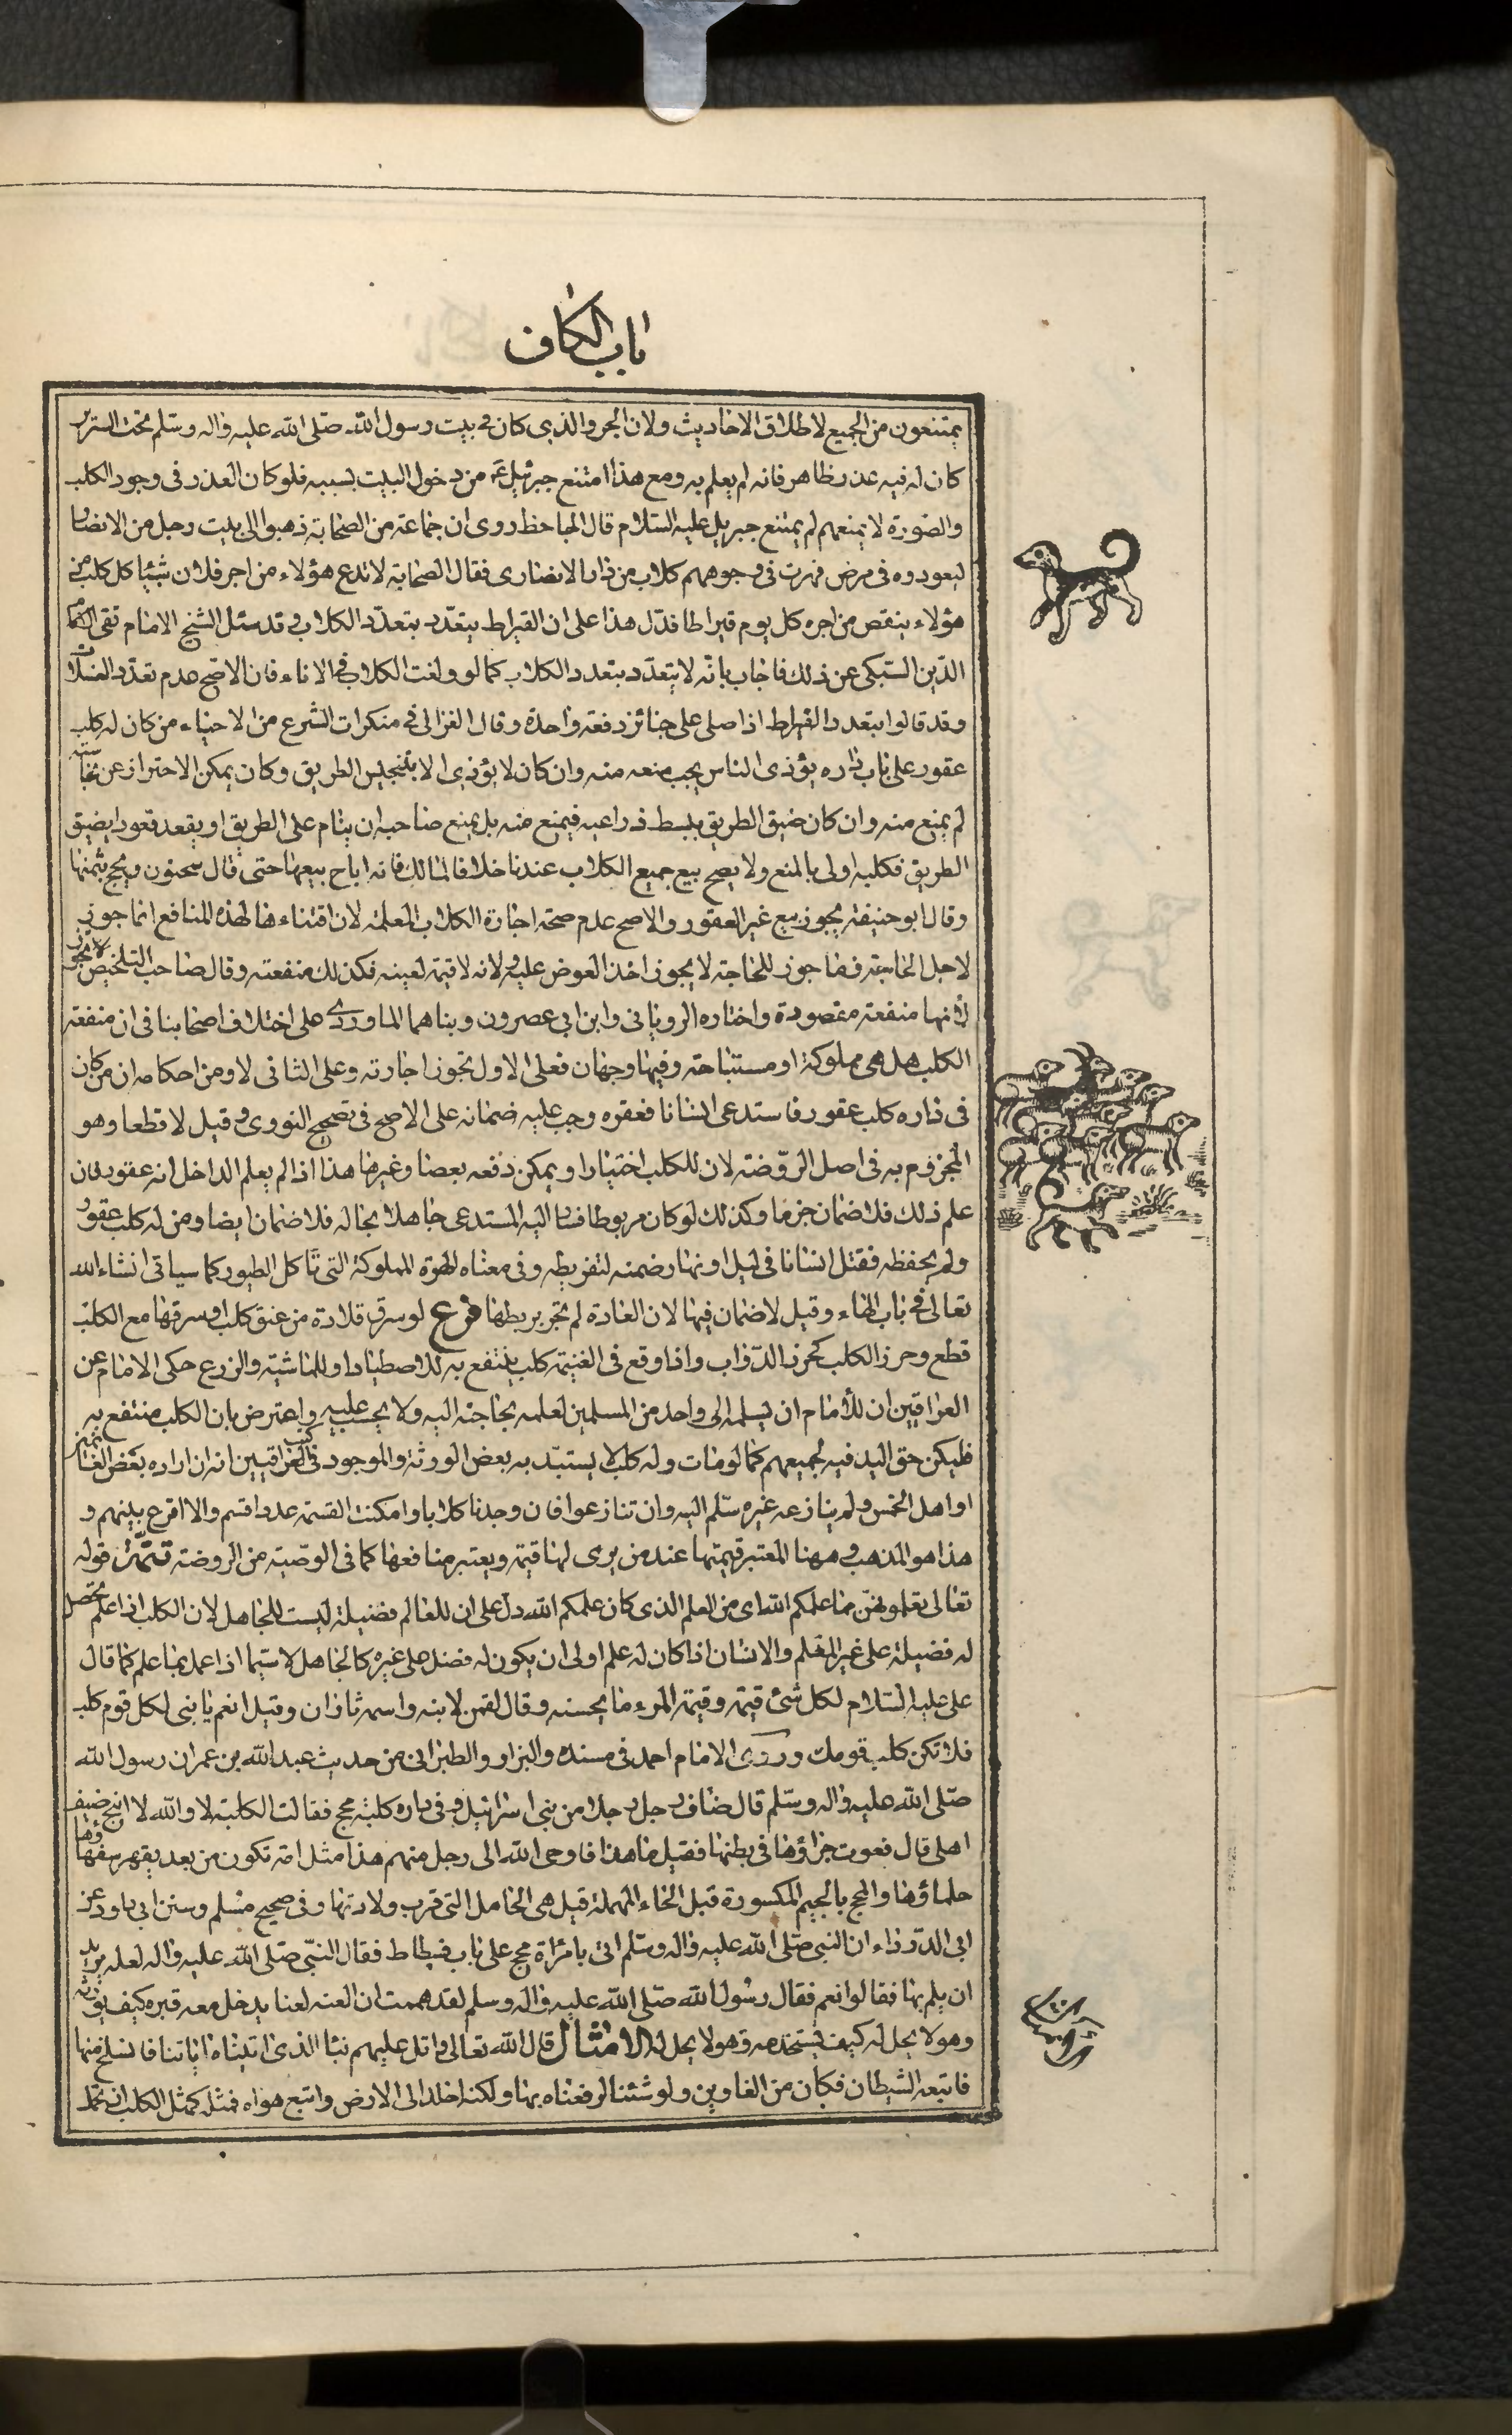 باب الكاف
يمتنعون من الجميع لاطلاق الاحاديث ولان الجرو الذى كان فى بيت رسول الله صلى الله عليه واله وسلم تحت السرير
كان له فيه عذر ظاهر فانه لم يعلم به ومع هذا امتنع جبرئيل ع من دخول البيت بسببه فلو كان العذر فى وجود الكلب
والصورة لا يمنعهم لم يمتنع جبريل عليه السلام قال الجاحظ روى ان جماعة من الصحابة ذهبوا الى بيت رجل من الانصار
ليعودوه فى مرض فهرت فى وجوههم كلاب من دار الانصارى فقال الصحابة لا تدع هؤلاء من اجر فلان شيئا كل كلب من
هؤلاء ينقص من اجره كل يوم قيراطا فدل هذا على ان القيراط يتعدد بتعدد الكلاب وقد سئل الشيخ الامام تقى
الدين السبكى عن ذلك فاجاب بانه لا يتعدد بتعدد الكلاب كما لو ولغت الكلاب فى الاناء فان الاصح عدم تعدد الغسلات
وقد قالوا بتعدد القيراط اذا صلى على جنائز دفعة واحدة وقال الغزالى فى منكرات الشرع من الاحياء من كان له كلب
عقور على باب داره يؤذى الناس يجب منعه منه وان كان لا يؤذى الا بتنجيس الطريق وكان يمكن الاحتراز عن نجاسته
لم يمنع منه وان كان ضيق الطريق ببسط ذراعيه فيمنع منه بل يمنع صاحبه ان ينام على الطريق او يقعد قعودا يضيق
الطريق فكلبه اولى بالمنع ولا يصح بيع جميع الكلاب عندنا خلافا لمالك فانه اباح بيعها حتى قال سحنون ويحج بثمنها
وقال ابو حنيفة يجوز بيع غير العقور والاصح عدم صحة اجارة الكلاب المعلمة لان اقتناءها لهذه المنافع انما جوز
لاجل الحاجة فما جوز للحاجة لا يجوز اخذ العوض عليه ولانه لا قيمة لعينه فكذلك منفعته وقال صاحب التلخيص لا تجوز
لأنها منفعة مقصودة واختاره الرويانى وابن ابى عصرون وبناهما الماوردى على اختلاف اصحابنا فى ان منفعة
الكلب هل هى مملوكة او مستباحة وفيها وجهان فعلى الاول تجوز اجارته وعلى الثانى لا ومن احكامه ان من كان
فى داره كلب عقور فاستدعى انسانا فعقره وجب عليه ضمانه على الاصح فى تصحيح النووى وقيل لا قطعا وهو
المجزوم به فى اصل الروضة لان للكلب اختيارا ويمكن دفعه بعصا وغيرها هذا اذا لم يعلم الداخل انه عقور فان
علم ذلك فلا ضمان جزما وكذلك لو كان مربوطا فسار اليه المستدعى جاهلا بحاله فلا ضمان ايضا ومن له كلب عقور
ولم يحفظه فقتل انسانا فى ليل او نهار ضمنه لتفريطه وفى معناه الهرة المملوكة التى تأكل الطيور كما سياتى انشاء الله
تعالى فى باب الهاء وقيل لا ضمان فيها لان العادة لم تجر بربطها فرع لو سرق قلادة من عنق كلب او سرقها مع الكلب
قطع وحرز الكلب كحرز الدواب واذا وقع فى الغنيمة كلب ينتفع به للاصطياد او للماشية والزرع حكى الامام عن
العراقيين ان للأمام ان يسلمه الى واحد من المسلمين لعلمه بحاجته اليه ولا يحسب عليه واعترض بان الكلب منتفع به
فليكن حق اليد فيه لجميعهم كما لو مات وله كلب لا يستبد به بعض الورثة والموجود فى كتب العراقيين انه ان اراده بعض الغانمين
او اهل الخمس ولم ينازعه غيره سلم اليه وان تنازعوا فان وجدنا كلابا وامكنت القسمة عددا قسم والا اقرع بينهم و
هذا هو المذهب وههنا المعتبر قيمتها عند من يرى لها قيمة ويعتبر منافعها كما فى الوصية من الروضة تتمة قوله
تعالى تعلمونهن مما علمكم الله اى من العلم الذى كان علمكم الله دل على ان للعالم فضيلة ليست للجاهل لان الكلب اذا علم تحصل
له فضيلة على غير المعلم والانسان اذا كان له علم اولى ان يكون له فضل على غيره كالجاهل لا سيما اذا عمل بما علم كما قال
على عليه السلام لكل شئ قيمة وقيمة المرء ما يحسنه وقال لقمن لابنه واسمه ثاران وقيل انعم يا بنى لكل قوم كلب
فلا تكن كلب قومك وروى الامام احمد فى مسنده والبزار والطبرانى من حديث عبد الله بن عمر ان رسول الله
صلى الله عليه واله وسلم قال ضاف رجل رجلا من بنى اسرائيل وفى داره كلبة مجح فقالت الكلبة لا والله لا انبح ضيف
اهلى قال فعوت جراؤها فى بطنها فقيل ما هذا فاوحى الله الى رجل منهم هذا مثل امة تكون من بعد يقهر سفهاؤها
حلماؤها والمجح بالجيم المكسورة قبل الحاء المهملة قيل هى الحامل التى قرب ولادتها وفى صحيح مسلم وسنن ابى داود عن
ابى الدرداء ان النبى صلى الله عليه واله وسلم اتى بامرأة مجح على باب فسطاط فقال النبى صلى الله عليه واله لعله يريد
ان يلم بها فقالوا نعم فقال رسول الله صلى الله عليه واله وسلم لقد هممت ان العنه لعنا يدخل معه قبره كيف يورثه
وهو لا يحل له كيف يستخدمه وهو لا يحل له الامثال قال الله تعالى واتل عليهم نبأ الذى اتيناه اياتنا فانسلخ منها
فاتبعه الشيطان فكان من الغاوين ولو شئنا لرفعناه بها ولكنه اخلد الى الارض واتبع هواه فمثله كمثل الكلب ان تحمل